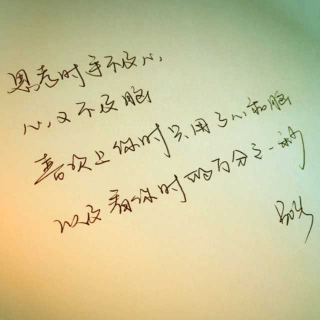 思考时手不及心
心又不及脑
喜欢上你时只用了心和脑
以及看你时的百分之一秒